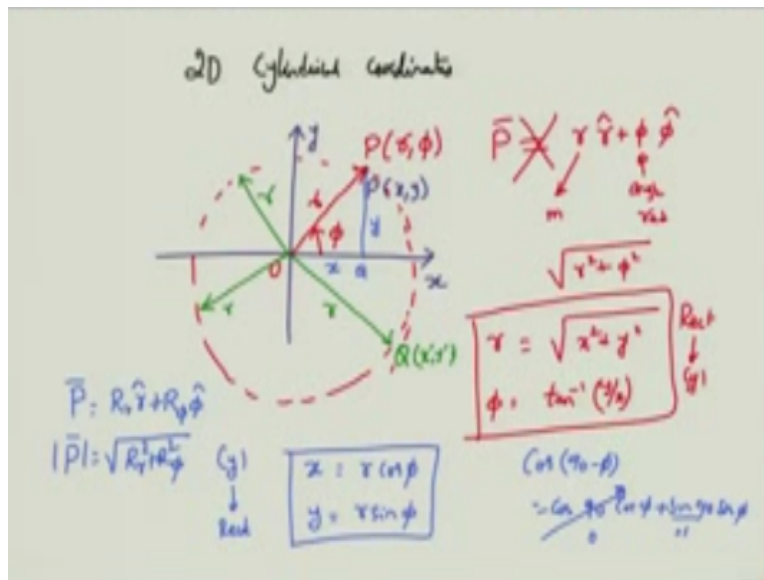 2D Cylindrical Coordinates
y
P(r,ϕ)
P(x,y)
r
r
ϕ
y
O
x
Q
x
r
r
Q(r,r')
P̄ = r r̂ + ϕ ϕ̂
m
angle
rad
√r²+ϕ²
r = √x²+y²
ϕ = tan⁻¹(y/x)
Rect
↓
Cyl
P̄ = Rᵣ r̂ + Rϕ ϕ̂
|P̄| = √Rᵣ²+Rϕ²
Cyl
↓
Rect
x = r cos ϕ
y = r sin ϕ
Cos (90-ϕ)
= Cos 90 Cos ϕ + Sin 90 Sin ϕ
0